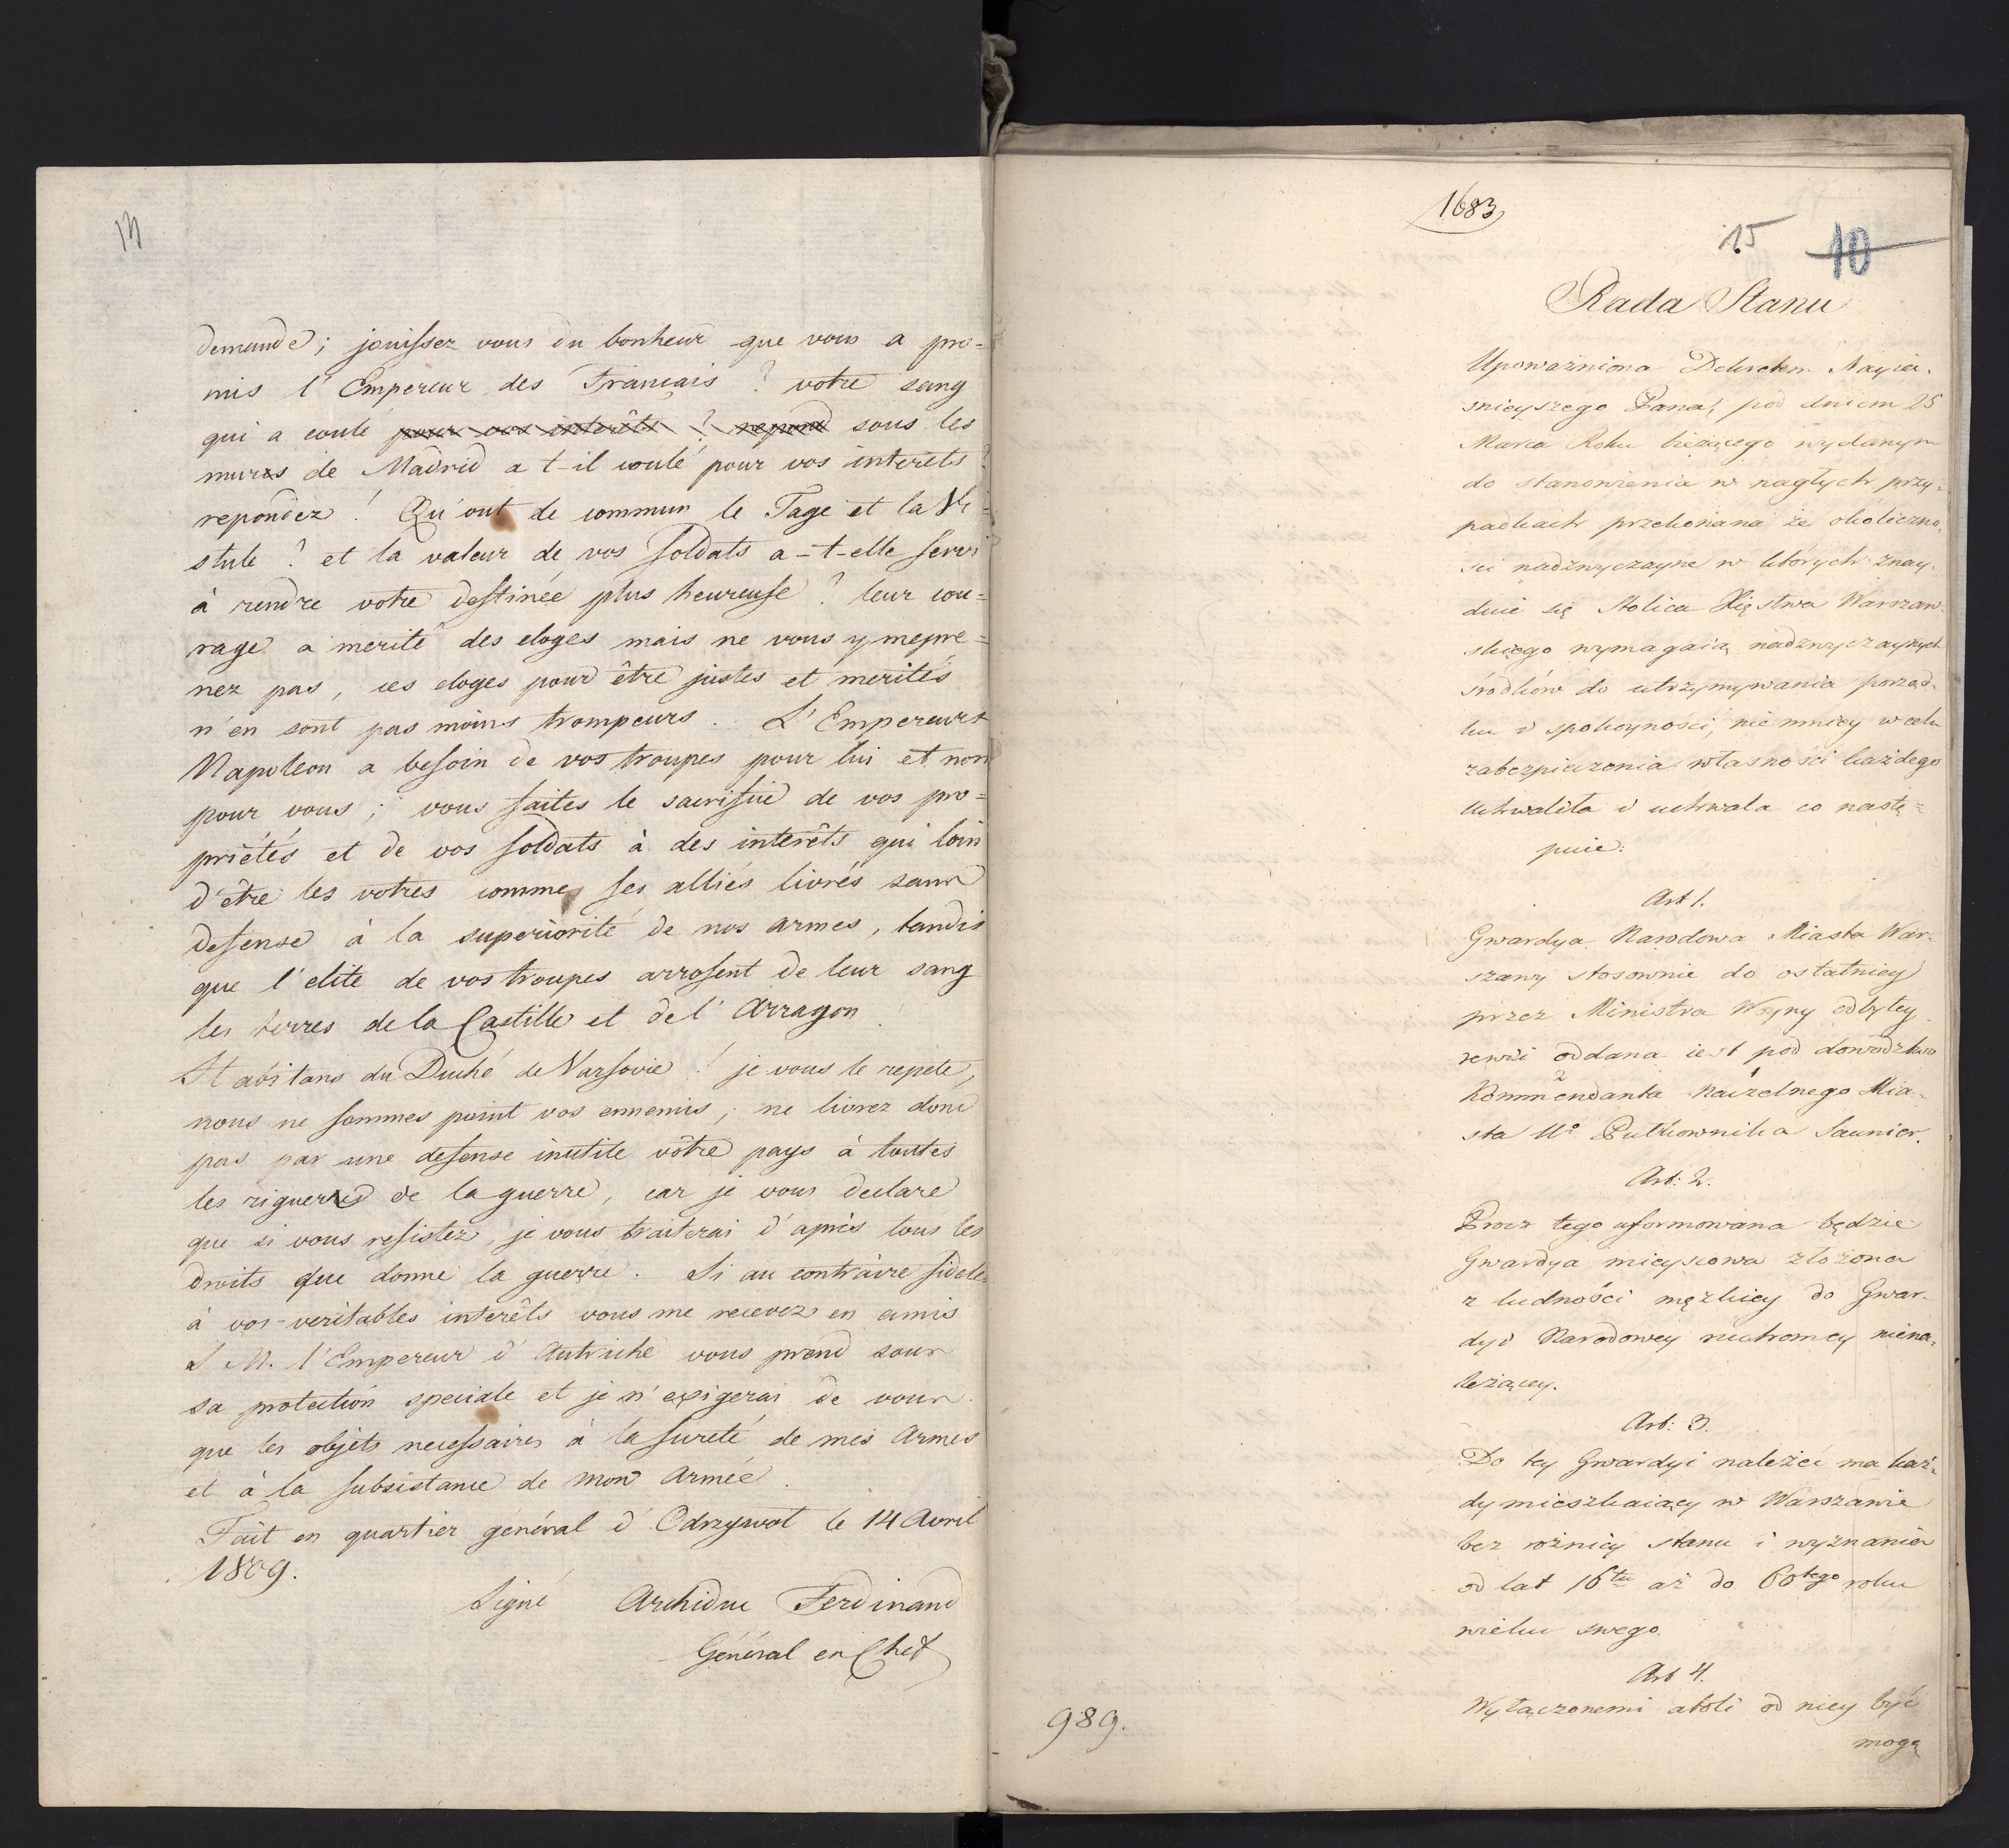 demande; jouissez vous du bonheur que vous a pro=
mis l'Empereur des Français? votre sang
qui a coulé pour vos interêts? repond sous les
murs de Madrid a t-il coulé pour vos interêts?
repondez! Qu'ont de commun le Tage et la Vi=
stule? et la valeur de vos soldats a-t-elle servi
à rendre votre destinée plus heureuse? leur cou=
rage a merité des eloges mais ne vous y mepre=
nez pas, ces eloges pour être justes et merités
n'en sont pas moins trompeurs. L'Empereur
Napoleon a besoin de vos troupes pour lui et non
pour vous; vous faites le sacrifice de vos pro=
priétés et de vos soldats à des interêts qui loin
d'être les votres comme ses alliés livrés sans
defense à la superiorité de nos armes, tandis
que l'elite de vos troupes arrosent de leur sang
les terres de la Castille et de l'Arragon!
Habitans du Duché de Varsovie! je vous le repete,
nous ne sommes point vos ennemis; ne livrez donc
pas par une defense inutile vôtre pays à toutes
les rigueurs de la guerre, car je vous declare
que si vous resistez, je vous traiterai d'après tous les
droits que donne la guerre. Si au contraire fideles
à vos veritables interêts vous me recevez en amis
S M. l'Empereur d'Autriche vous prend sous
sa protection speciale et je n'exigerai de vous
que les objets necessaires à la sureté de mes Armes
et à la subsistance de mon Armée.
Fait en quartier général d'Odrzywol le 14 Avril
1809.
Signé Archiduc Ferdinand
Général en Chef
1683
15 10
Rada Stanu
Upoważniona Dekretem Nayia-
śnieyszego Pana, pod dniem 25
Marca Roku bieżącego wydanym
do stanowienia w nagłych przy-
padkach przekonana że okoliczno-
ści nadzwyczayne w których znay-
duie się Stolica Xięstwa Warszaw-
skiego wymagaią nadzwyczaynych
środków do utrzymywania porząd-
ku i spokoyności, niemniey w celu
zabezpieczenia własności każdego
Uchwaliła i uchwala co nastę=
puie:
Art 1.
Gwardya Narodowa Miasta War-
szawy stosownie do ostatniey
przez Ministra Woyny odbytey
rewii oddana iest pod dowodztwo
Kommendanta Naczelnego Mia-
sta Półkownika Saunier.
Art: 2.
Procz tego uformowana będzie
Gwardya mieyscowa złożona
z ludności męzkiey do Gwar-
dyi Narodowey ruchomey niena-
leżącey.
Art: 3.
Do tey Gwardyi należeć ma każ-
dy mieszkaiący w Warszawie
bez rożnicy stanu i wyznania
od lat 16tu aż do 60tego roku
wieku swego.
Art 4.
Wyłączonemi atoli od niey być
mogą
989.